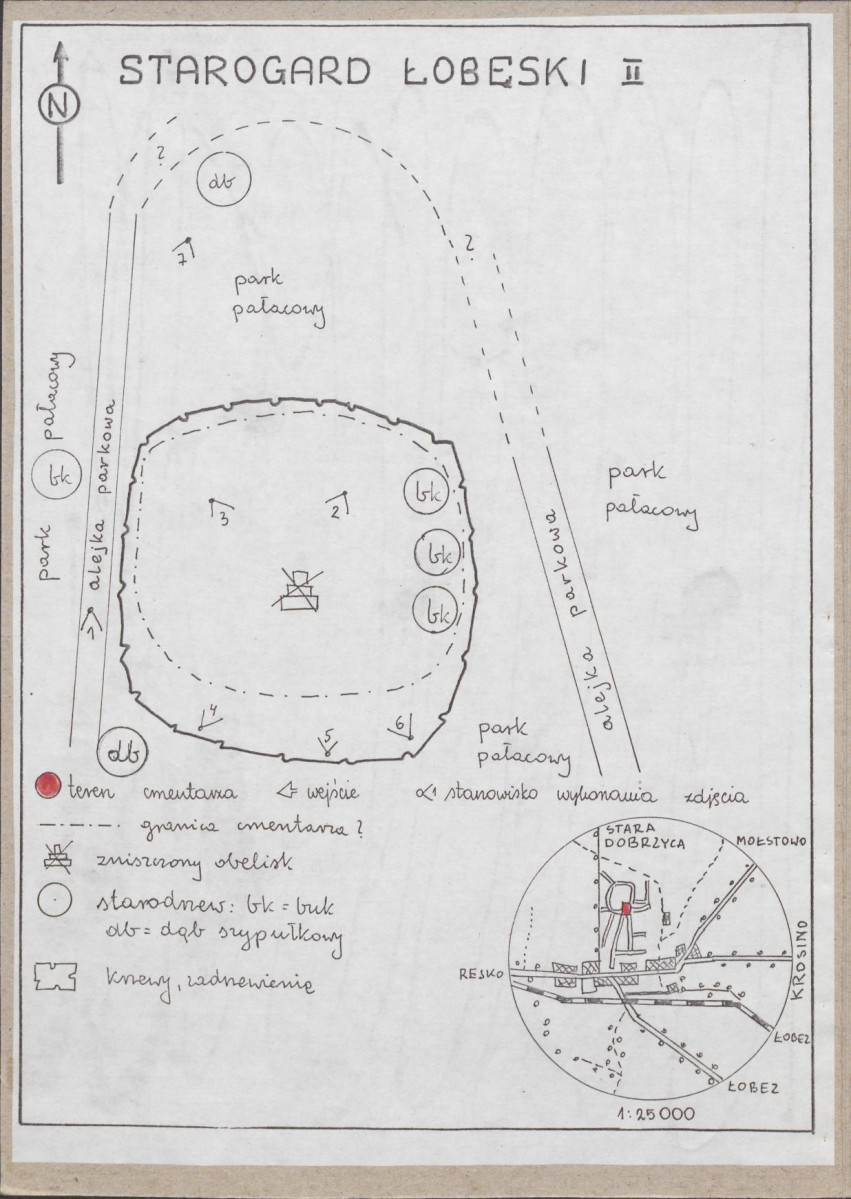 STAROGARD ŁOBESKI II
N
?
db
7
park
pałacowy
?
park bk pałacowy
alejka parkowa
1
3
2
bk
bk
bk
park
pałacowy
alejka parkowa
4
5
6
db
park
pałacowy
teren cmentarza
wejście
1 stanowisko wykonania zdjęcia
granica cmentarza ?
zniszczony obelisk
starodrzew: bk = buk
db = dąb szypułkowy
krzewy, zadrzewienie
STARA
DOBRZYCA
MOŁSTOWO
RESKO
KROSINO
ŁOBEZ
ŁOBEZ
1:25000